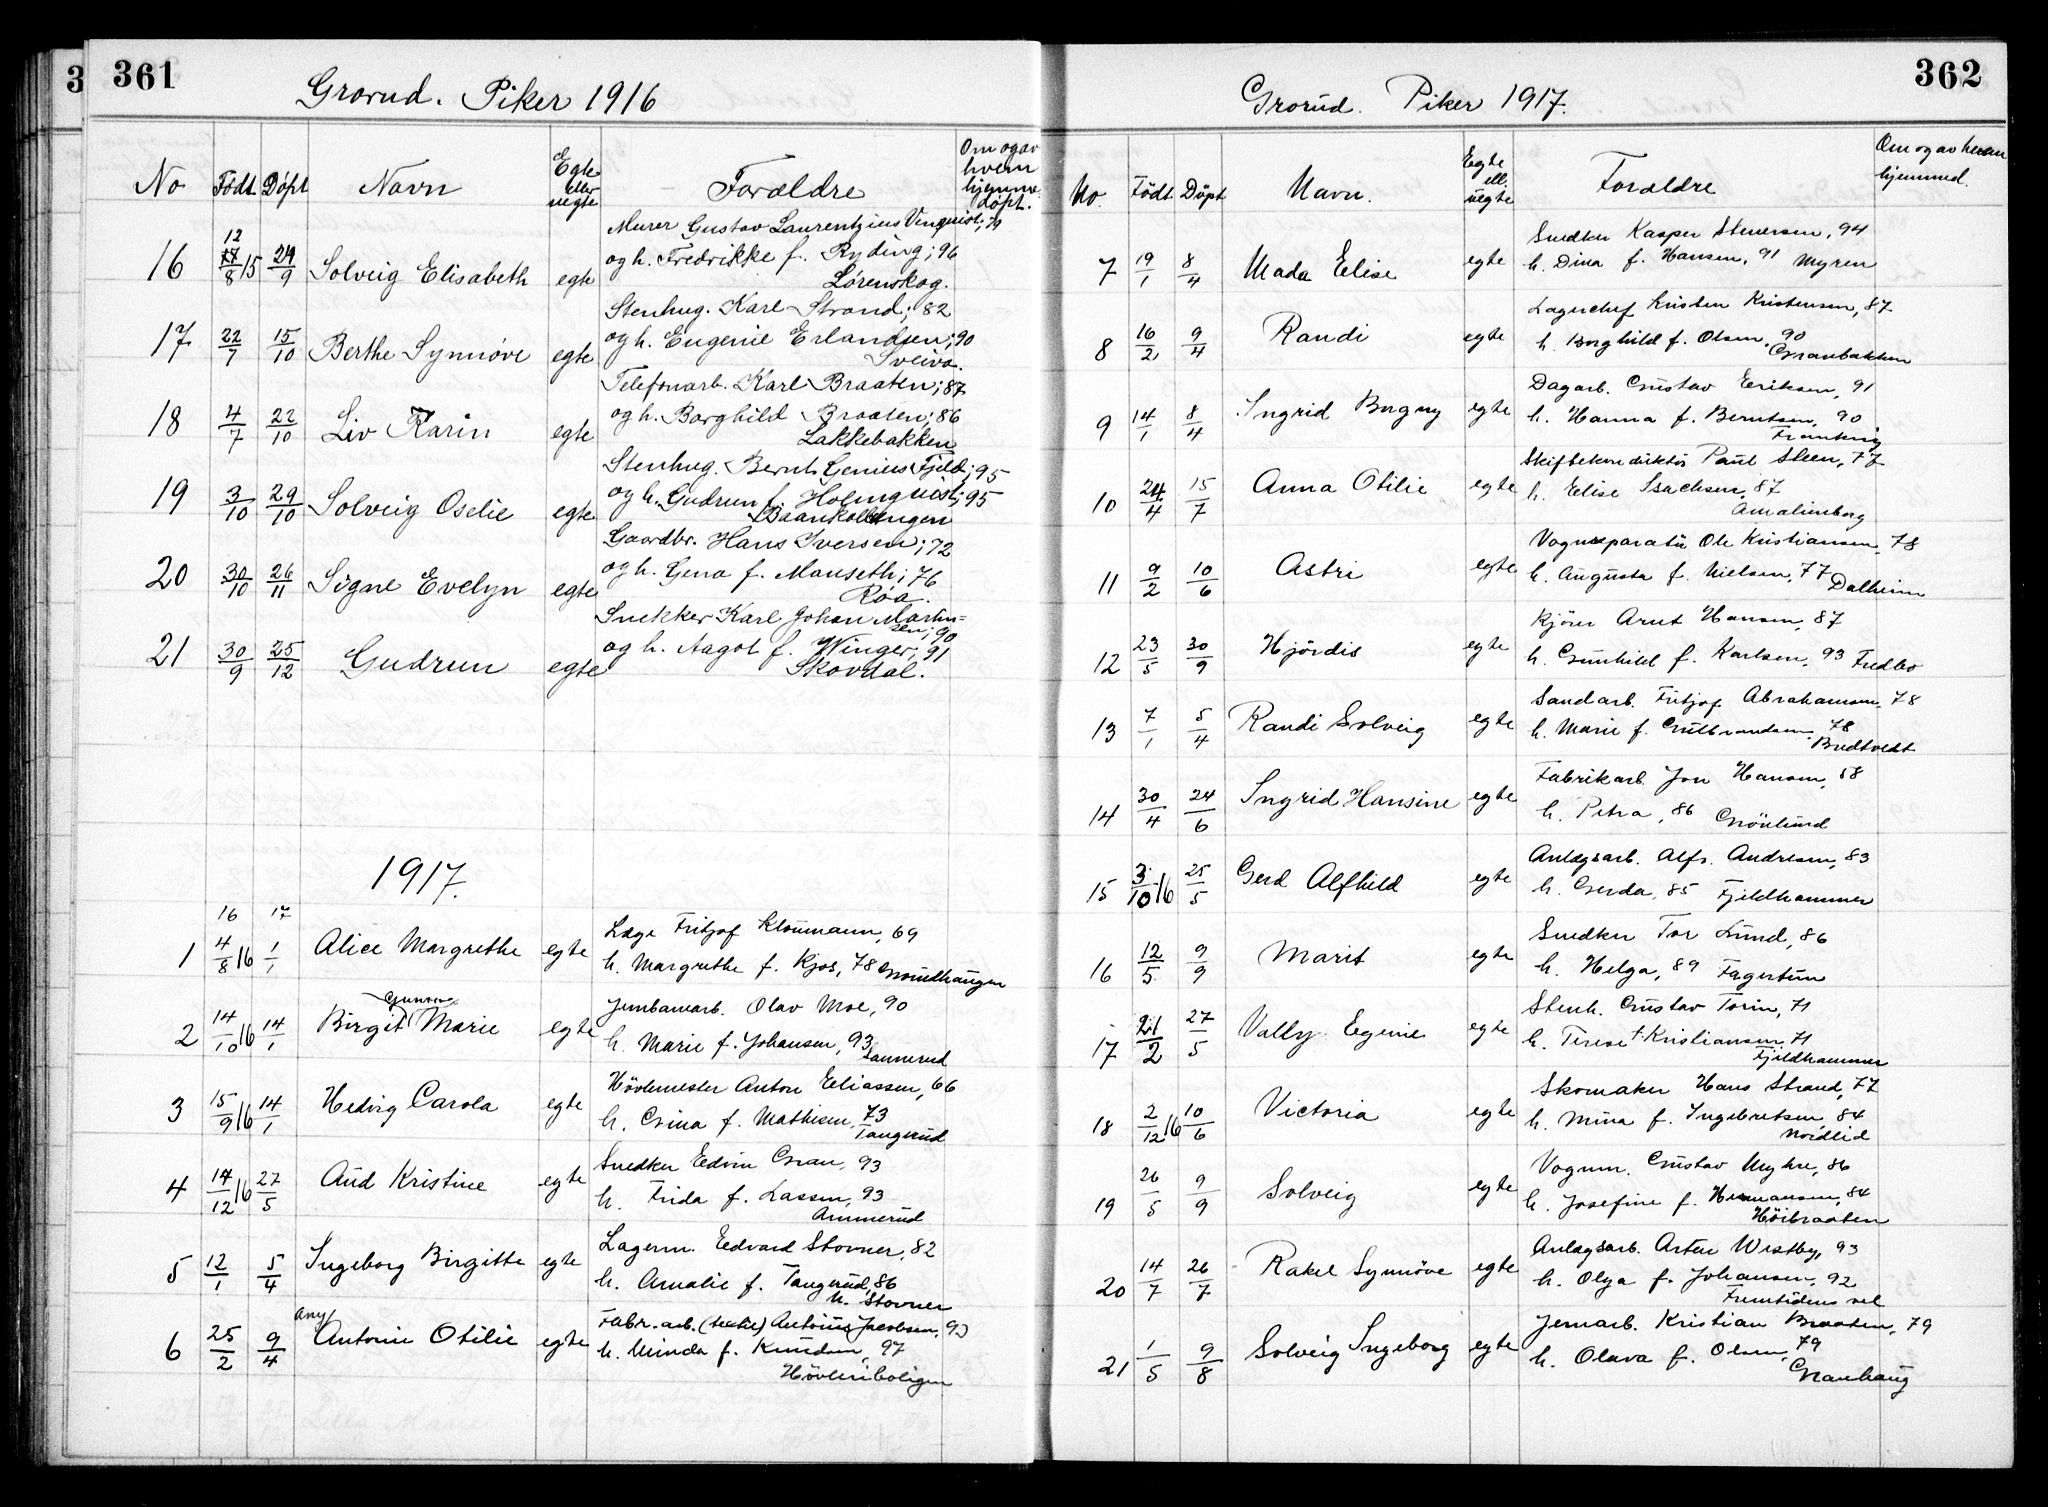 3
361
Grorud. Piker 1916
No Født Døpt Navn Egte eller uegte Forældre Om og av hvem hjemme døpt.
16 12/8 15 24/9 Solveig Elisabeth egte Murer Gustav Laurentzius ; 79
og h. Fredrikke f. Ryding; 96
Lørenskog.
17 22/7 15/10 Berthe Synnøve egte Stenhug. Karl Strand; 82
og h. Eugenie Erlandsen; 90
Sveiva.
18 4/7 22/10 Liv Karin egte Telefonarb. Karl Braaten; 87
og h. Borghild Braaten; 86
Lakkebakken
19 3/10 29/10 Solveig Oselie egte Stenhug. Bernt Genius Fjeld; 95
og h. Gudrun f. Holmquist; 95
Baankallengen
20 30/10 26/11 Signe Evelyn egte Gaardbr. Hans Iversen; 72
og h. Gena f. Manseth; 76
Røa.
21 30/9 25/12 Gudrun egte Snekker Karl Johan Martin=
sen; 90
og h. Aagot f. Winger; 91
Skovdal.
1917.
16 17
1 4/8 16 1/1 Alice Margrethe egte Læge Fritjof Kloumann, 69
h. Margrethe f. Kjos, 78 Grorudhaugen
2 14/10 16 14/1 Birgit Gunvor Marie egte Jernbanearb. Olav Moe, 90
h. Marie f. Johansen, 93
Sannerud
3 15/9 16 14/1 Hedvig Carola egte Høvlemester Anton Eliassen, 66
h. Gina f. Mathisen, 73
Tangerud
4 14/12 16 27/5 Aud Kristine egte Snedker Edvin Gran, 93
h. Frida f. Lassen, 93
Ammerud
5 12/1 5/4 Ingeborg Birgitte egte Lagerm. Edvard Stovner, 82
h. Amalie f. Tangerud, 86
N. Stovner
6 25/2 9/4 Any Antonie Otilie egte Fabr.-arb. (textil) Antonius Jacobsen, 92
h. Minda f. Knudsen, 97
Høvleriboligen
362
Grorud. Piker 1917.
No. Født Døpt Navn. Egte ell. uegte Forældre Om og av hvem hjemmed.
7 19/1 8/4 Mada Elise egte Snedker Kasper Stenersen, 94
h. Dina f. Hansen, 91 Myren
8 16/2 9/4 Randi egte Lagerchef Kristen Kristensen, 87
h. Borghild f. Olsen, 90
Granbakken
9 14/1 8/4 Ingrid Borgny egte Dagarb. Gustav Eriksen, 91
h. Hanna f. Berntsen, 90
10 24/4 15/7 Anna Otilie egte Skiftekonduktør Paul Steen, 77
h. Elise Isachsen, 87
Amalienborg
11 9/2 10/6 Astri egte Vognreparatør Ole Kristiansen, 78
h. Augusta f. Nielsen, 77 Dalheim
12 23/5 30/9 Hjørdis egte Kjører Arnt Hansen, 87
h. Gunhild f. Karlsen, 93 Fredbo
13 7/1 5/4 Randi Solveig egte Sandarb. Fritjof Abrahamsen, 78
h. Marie f. Gulbrandsen, 78
Bredtvedt
14 30/4 24/6 Ingrid Hansine egte Fabrikarb. Jon Hansen, 58
h. Petra, 86 Grønlund
15 3/10 16 25/5 Gerd Alfhild egte Anlægsarb. Alfr. Andresen, 83
h. Gerda, 85 Fjeldhammer
16 12/5 9/9 Marit egte Snedker Tor Lund, 86
h. Helga, 89 Fagertun
17 21/2 27/5 Vally Egenie egte Stenh. Gustav Torin, 71
h. Terese f. Kristiansen, 71
Fjeldhammer
18 2/12 16 10/6 Victoria egte Skomaker Hans Strand, 77
h. Mina f. Ingebretsen 84
Nordlid
19 26/5 9/9 Solveig egte Vognm. Gustav Myhre, 86
h. Josefine f. Hermansen, 84
Høibraaten
20 14/7 26/7 Rakel Synnøve egte Anlægsarb. Artur Westby, 93
h. Olga f. Johansen, 92
Fremtidens vel
21 1/5 9/8 Solveig Ingeborg egte Jernarb. Kristian Braaten, 79
h. Olava f. Olsen, 79
Granhaug